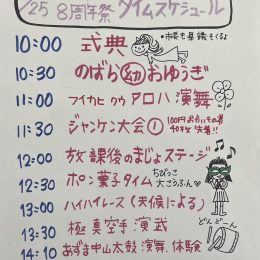 /25 8周年祭 タイムスケジュール
10:00 式典 •市長も泉織もくるよ
10:30 のばら幼おゆうぎ
11:00 フイカヒ カウ アロハ 演舞
11:30 ジャンケン大会① 100円お介い
40名 先着!!
12:00 放課後のまじょステージ
12:30 ポン菓子タイム ちびっこ
大こうふん♡
13:00 ハイハイレース(天候による)
13:30 極真空手 演武 どんどーん
14:10 あずま中山太鼓 演舞.体験